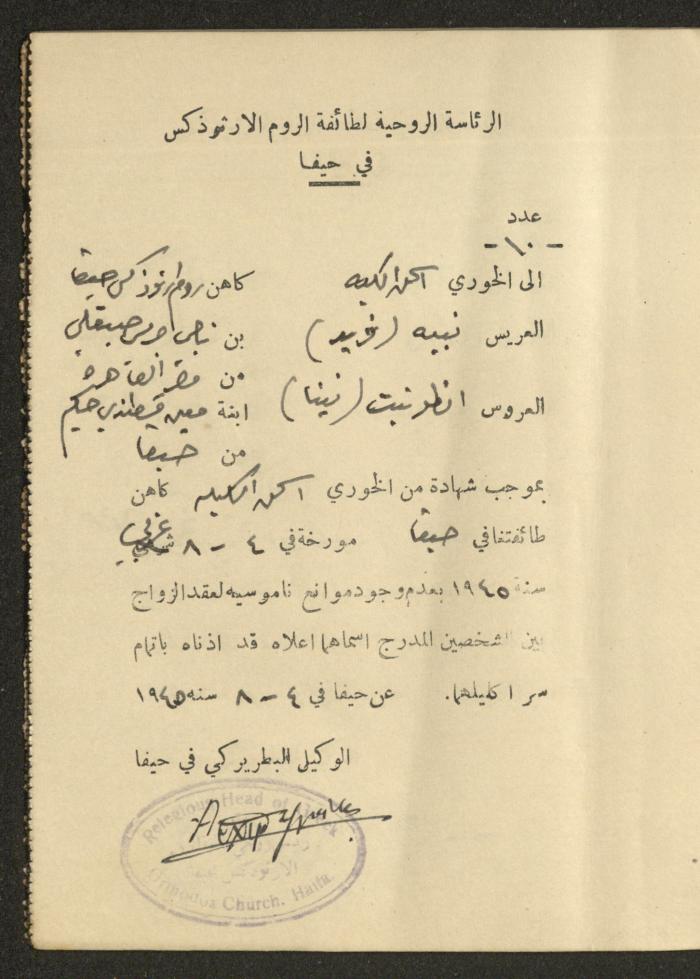 الرئاسة الروحية لطائفة الروم الارثوذكس
في حيفا
عدد
- ١٠ -
الى الخوري كاهن روم ارثوذكس حيفا
العريس نبيه (فريد) بن
من مصر القاهرة
العروس انطونيت (نينا) ابنة حكيم
من حيفا
بموجب شهادة من الخوري كاهن
طائفتنا في حيفا مورخة في ٤ - ٨ غربي
سنة ١٩٤٥ بعدم وجود موانع ناموسيه لعقد الزواج
بين الشخصين المدرج اسماهما اعلاه قد اذناه باتمام
سر اكليلهما. عن حيفا في ٤ - ٨ سنه ١٩٤٥
الوكيل البطريركي في حيفا
Relegious Head of Greek
الارثوذكس
Orthodox Church. Haifa.